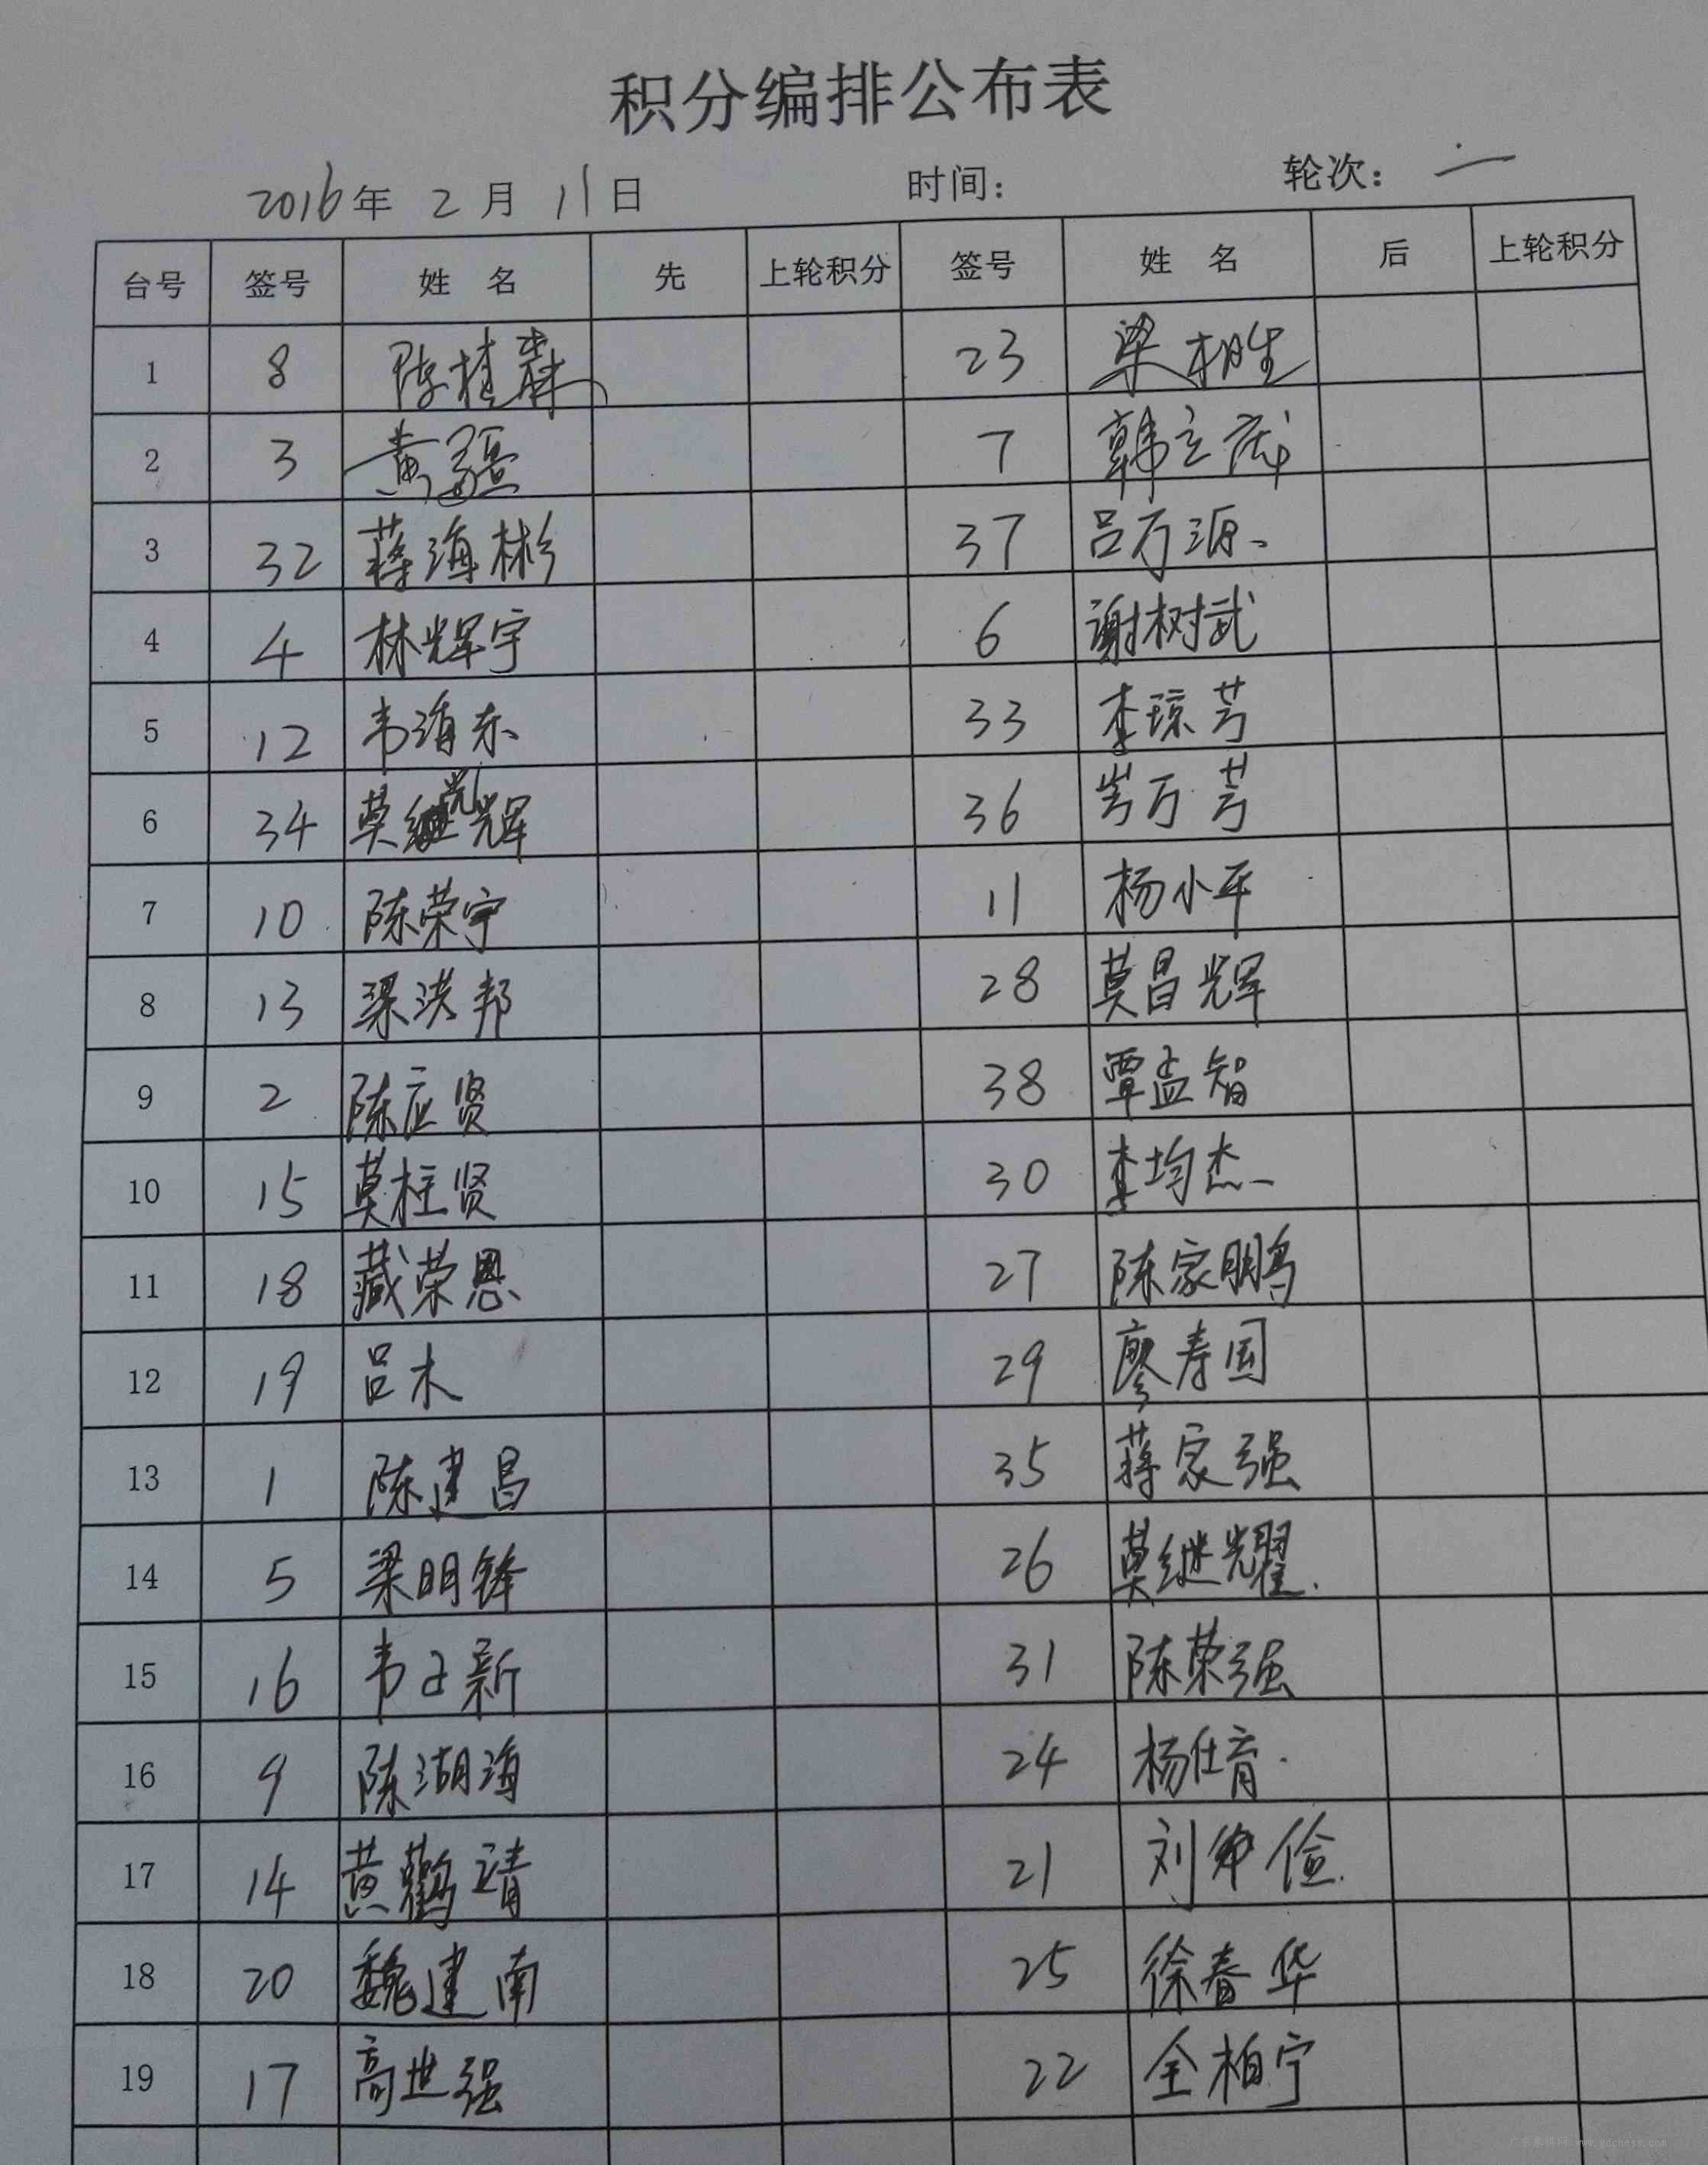 积分编排公布表
2016年 2月 11日 时间： 轮次： 一
台号 签号 姓 名 先 上轮积分 签号 姓 名 后 上轮积分
1 8 陈桂森 23 梁相胜
2 3 黄疆 7 韩立成
3 32 蒋海彬 37 吕万源
4 4 林辉宇 6 谢树武
5 12 韦海东 33 李琼芳
6 34 莫继光辉 36 岑万芳
7 10 陈荣宇 11 杨小平
8 13 梁洪邦 28 莫昌辉
9 2 陈应贤 38 覃孟智
10 15 莫柱贤 30 李均杰
11 18 藏荣恩 27 陈家鹏
12 19 吕木 29 廖寿国
13 1 陈建昌 35 蒋家强
14 5 梁明锋 26 莫继耀
15 16 韦子新 31 陈荣强
16 9 陈湖海 24 杨仕育
17 14 黄鹳靖 21 刘俭
18 20 魏建南 25 徐春华
19 17 高世强 22 全柏宁